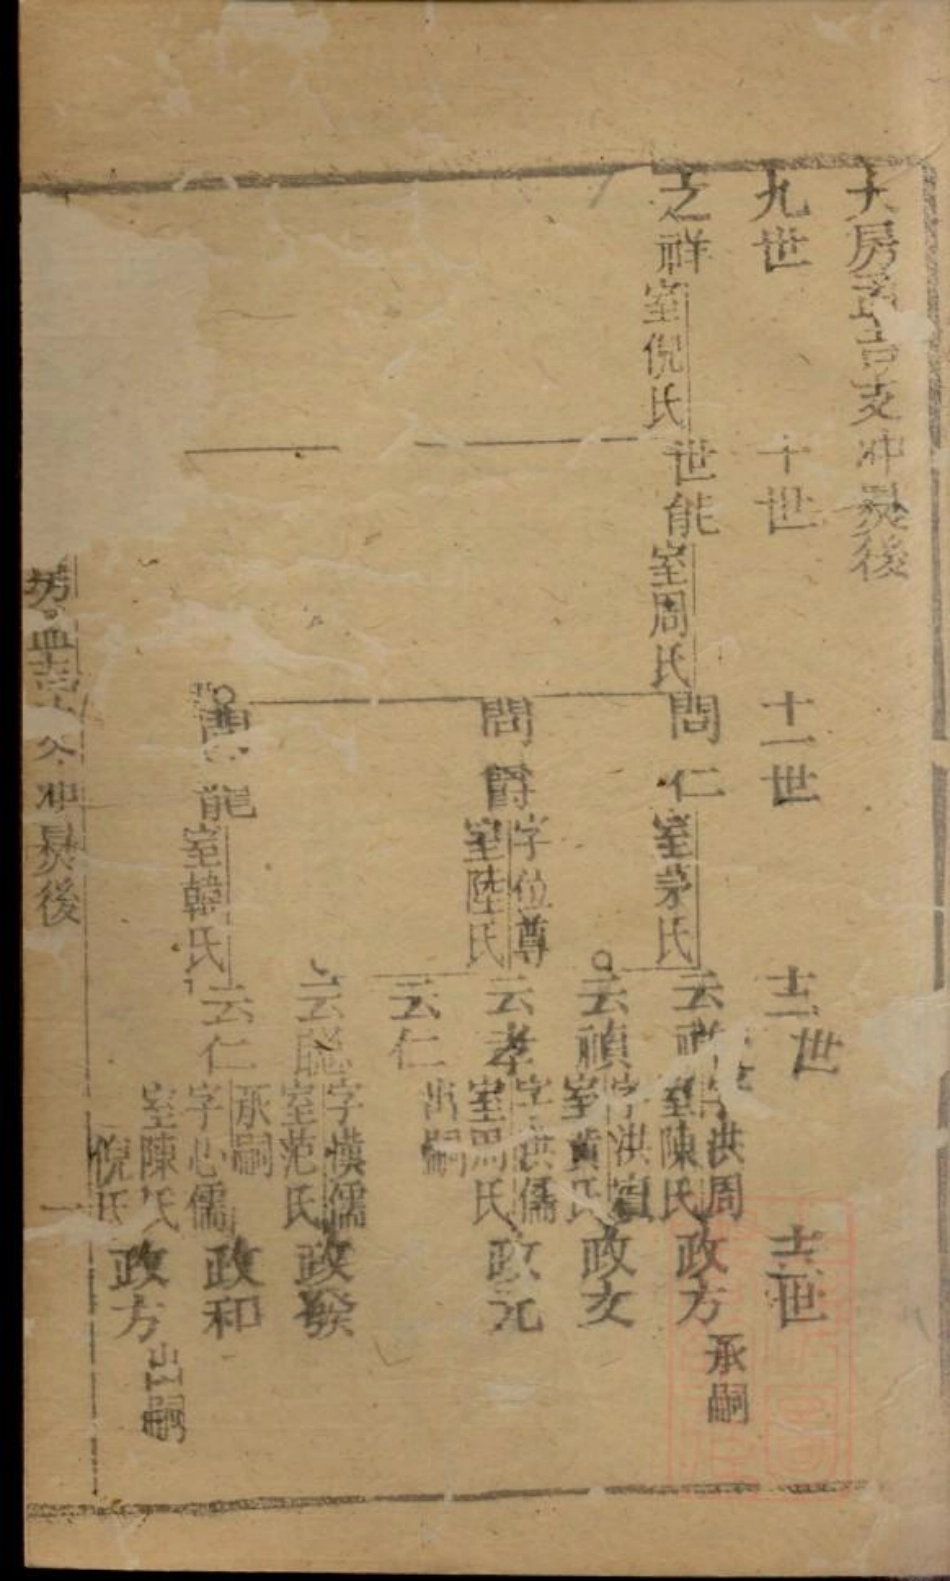 大房孟吉支冲煚後
九世
十世
十一世
十二世
十三世
之祥 室倪氏
世能 室周氏
問仁 室茅氏
云 字洪周 室陳氏
政方 承嗣
云禎 字洪 室黃氏
政文
問爵 字位尊 室陸氏
云孝 字洪儒 室周氏
政元
云仁 出嗣
云聪 字漢儒 室范氏
政發
問能 室韓氏
云仁 承嗣 字心儒 室陳氏 倪氏
政和
政方 出嗣
房孟吉 冲煚後
一